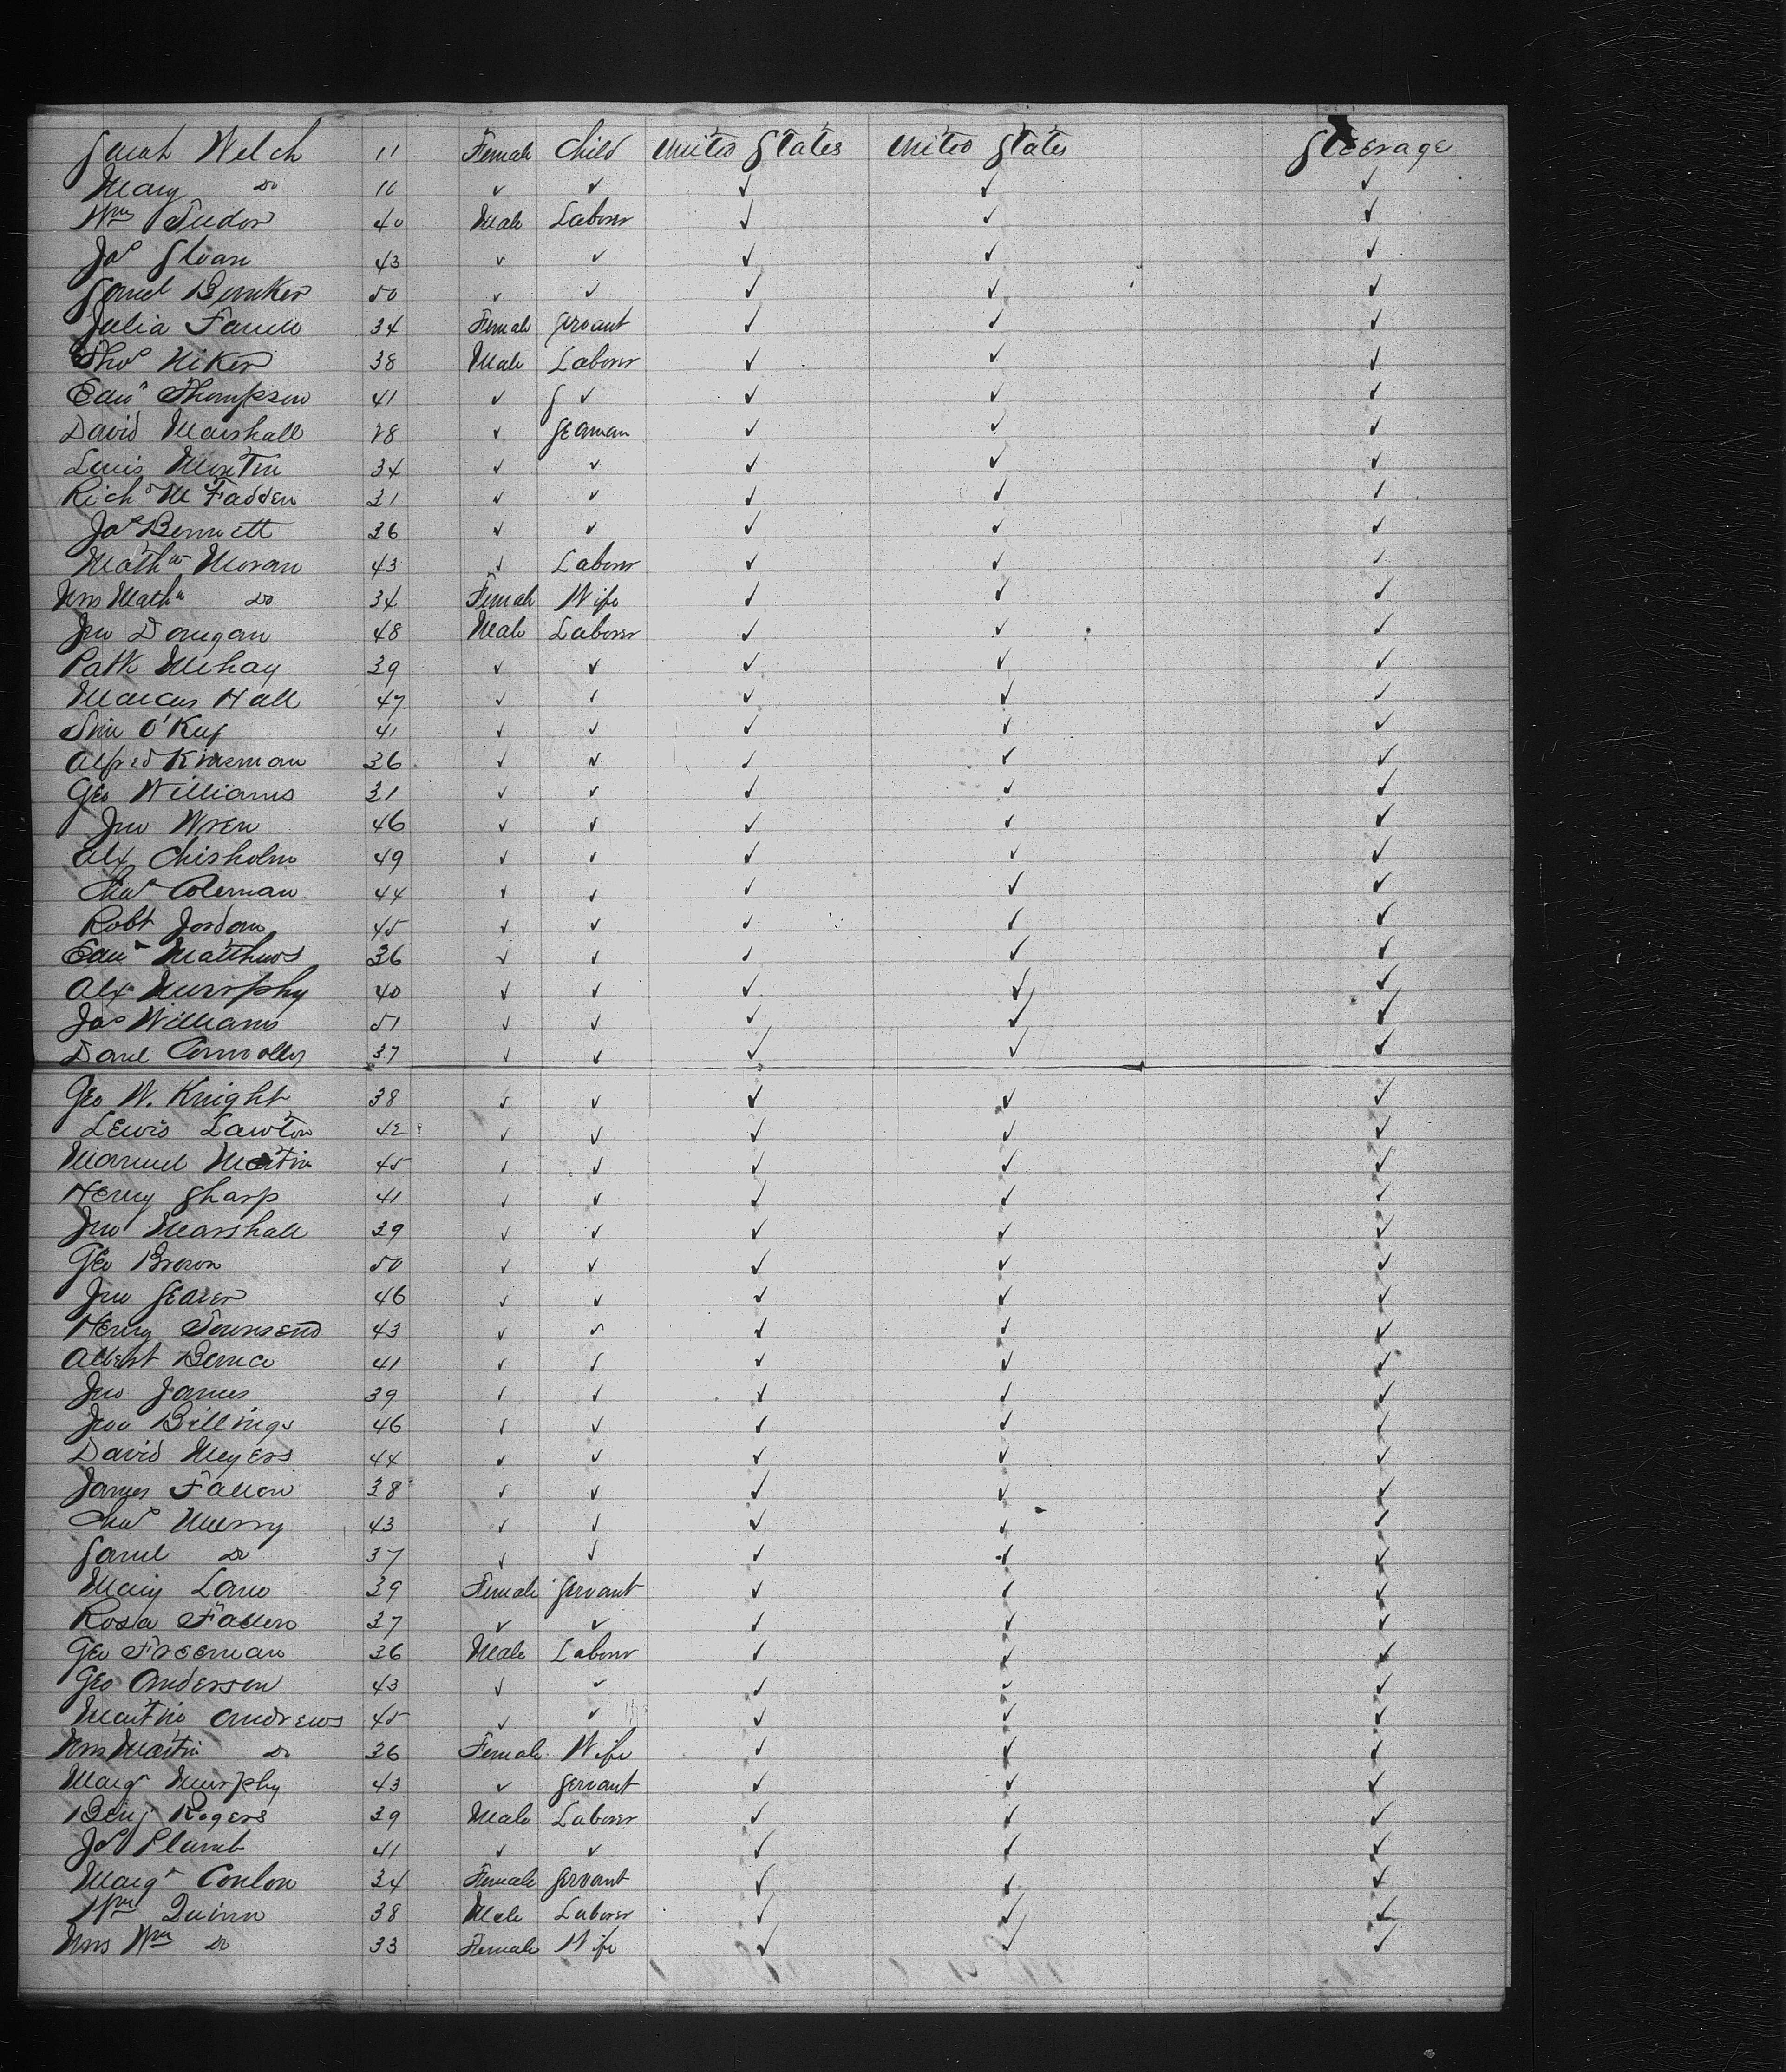 Sarah Welch 11 Female Child United States United States Steerage
Mary Do 10 ✓ ✓ ✓ ✓ ✓
Wm Tudor 40 Male Laborer ✓ ✓ ✓
Jas Sloan 43 ✓ ✓ ✓ ✓ ✓
Saml Bunker 50 ✓ ✓ ✓ ✓ ✓
Julia 34 Female Servant ✓ ✓ ✓
Thos Niker 38 Male Laborer ✓ ✓ ✓
Edwd Thompson 41 ✓ ✓ ✓ ✓ ✓
David Marshall 28 ✓ Seaman ✓ ✓ ✓
Louis Martin 34 ✓ ✓ ✓ ✓ ✓
Richd McFadden 31 ✓ ✓ ✓ ✓ ✓
Jas Bennett 36 ✓ ✓ ✓ ✓ ✓
Mathw Moran 43 ✓ Laborer ✓ ✓ ✓
Mrs Mathw Do 34 Female Wife ✓ ✓ ✓
Jno Donegan 48 Male Laborer ✓ ✓ ✓
Patk Mehay 39 ✓ ✓ ✓ ✓ ✓
Marcus Hall 47 ✓ ✓ ✓ ✓ ✓
Tim O'Keef 41 ✓ ✓ ✓ ✓ ✓
Alfred Kinsman 36 ✓ ✓ ✓ ✓ ✓
Geo Williams 31 ✓ ✓ ✓ ✓ ✓
Jno Wren 46 ✓ ✓ ✓ ✓ ✓
Alx Chisholm 49 ✓ ✓ ✓ ✓ ✓
Chas Coleman 44 ✓ ✓ ✓ ✓ ✓
Robt Jordan 45 ✓ ✓ ✓ ✓ ✓
Edwd Matthews 36 ✓ ✓ ✓ ✓ ✓
Alx Murphy 40 ✓ ✓ ✓ ✓ ✓
Jas Williams 51 ✓ ✓ ✓ ✓ ✓
Danl Connolly 37 ✓ ✓ ✓ ✓ ✓
Geo W. Knight 38 ✓ ✓ ✓ ✓ ✓
Lewis Lawton 42 ✓ ✓ ✓ ✓ ✓
Manuel Martin 45 ✓ ✓ ✓ ✓ ✓
Henry Sharp 41 ✓ ✓ ✓ ✓ ✓
Jno Marshall 39 ✓ ✓ ✓ ✓ ✓
Geo Brown 50 ✓ ✓ ✓ ✓ ✓
Jno 46 ✓ ✓ ✓ ✓ ✓
Henry Townsend 43 ✓ ✓ ✓ ✓ ✓
Albert 41 ✓ ✓ ✓ ✓ ✓
Jno James 39 ✓ ✓ ✓ ✓ ✓
Jno Billings 46 ✓ ✓ ✓ ✓ ✓
David Meyers 44 ✓ ✓ ✓ ✓ ✓
James Fallon 38 ✓ ✓ ✓ ✓ ✓
Chas Murry 43 ✓ ✓ ✓ ✓ ✓
Saml Do 37 ✓ ✓ ✓ ✓ ✓
Mary Lane 39 Female Servant ✓ ✓ ✓
Rosa Fallen 37 ✓ ✓ ✓ ✓ ✓
Geo Freeman 36 Male Laborer ✓ ✓ ✓
Geo Anderson 43 ✓ ✓ ✓ ✓ ✓
Martin Andrews 45 ✓ ✓ ✓ ✓ ✓
Mrs Martin Do 36 Female Wife ✓ ✓ ✓
Margt Murphy 43 ✓ Servant ✓ ✓ ✓
Benj Rogers 39 Male Laborer ✓ ✓ ✓
Jos Plumb 41 ✓ ✓ ✓ ✓ ✓
Margt Conlon 34 Female Servant ✓ ✓ ✓
Wm Quinn 38 Male Laborer ✓ ✓ ✓
Mrs Wm Do 33 Female Wife ✓ ✓ ✓